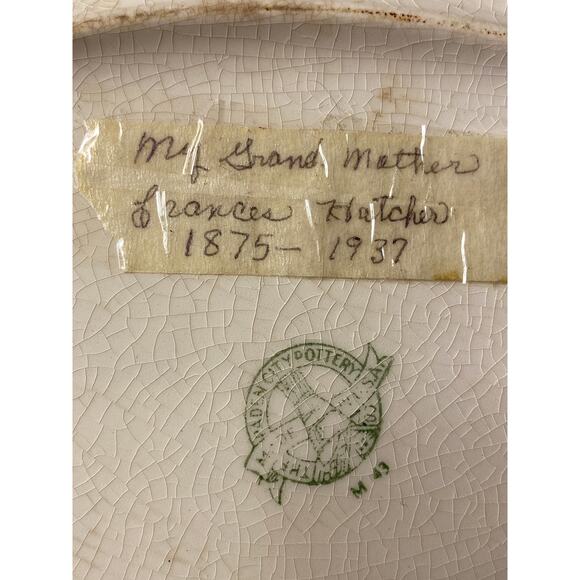 My Grand Mother
Frances Hatcher
1875 – 1937
PADEN CITY POTTERY
M 43